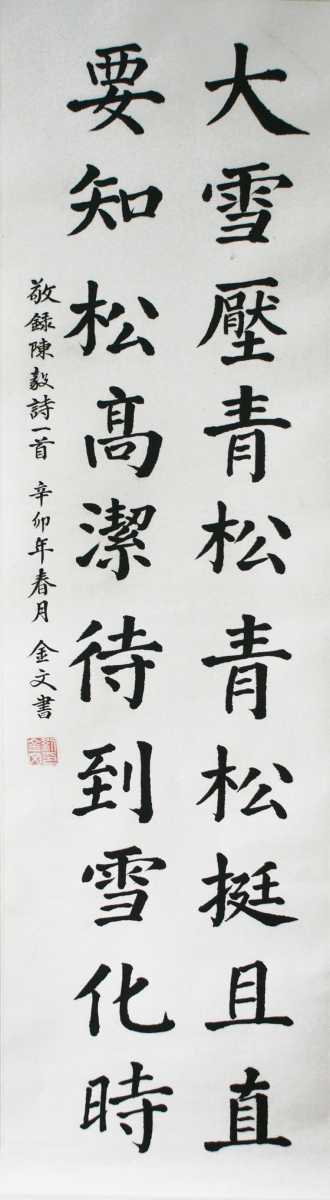 大雪壓青松青松挺且直
要知松高潔待到雪化時
敬録陳毅詩一首 辛卯年春月 金文書